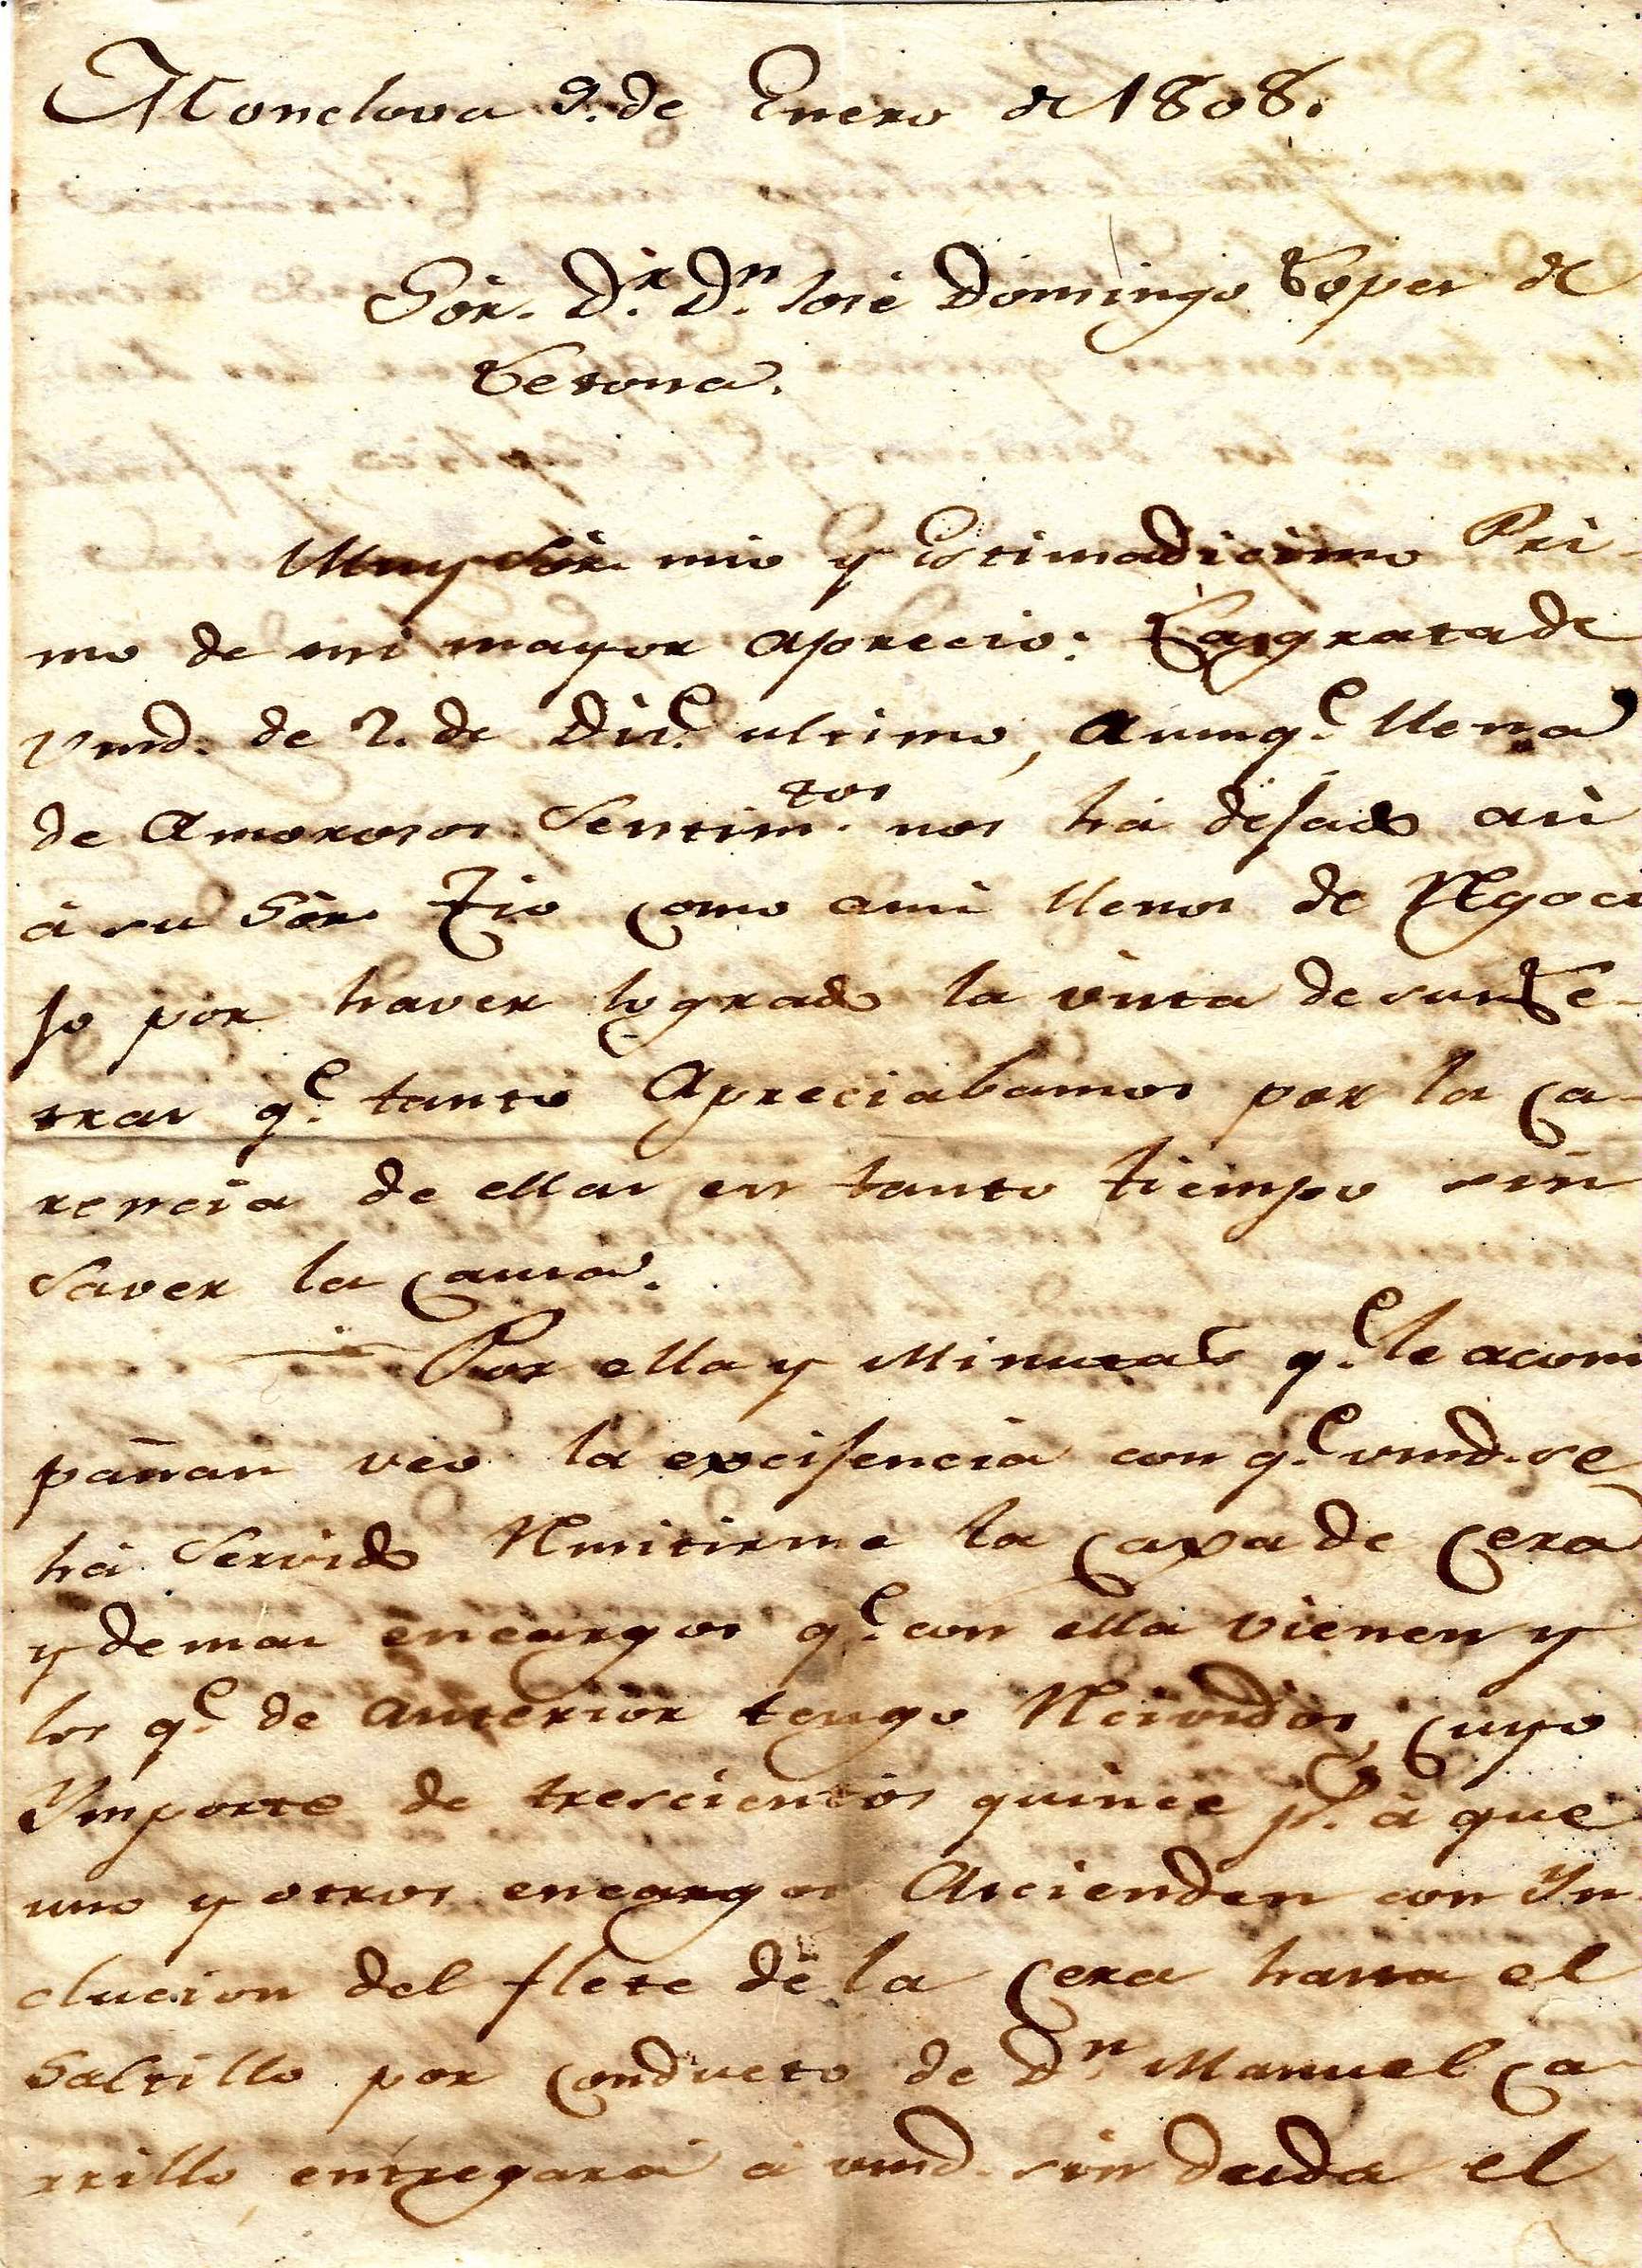 Monclova 9. de Enero de 1808.
Sôr. D.r D.n José Domingo Lopes de
Letona.
Muy Sôr. mio y Estimadicimo Pri-
mo de mi mayor aprecio: La grata de
Vmd. de 2. de Dic.e ultimo, aunq.e llena
de Amorosos Sentim.tos nos há dejado asi
à su Sôr. Tio como ami llenos de Regoci
jo por haver logrado la vista de sus Le-
tras q.e tanto Apreciabamos por la Ca-
rencia de ellas en tanto tiempo sin
Saver la Causa.
Por ella y Minutas q.e le acom
pañan veo la excisencia con q.e vmd. se
há Servido Remitirme la Caxa de Cera
y demas encargos q.e con ella vienen y
los q.e de anterior tengo Recividos, Cuyo
Ymporte de trescientos quince p.s à que
uno y otros encargos Ascienden con Yn
clucion del flete de la Cera hasta el
Saltillo por Conducto de D.n Manuel Ca-
rrillo, entregará á vmd. sin duda el